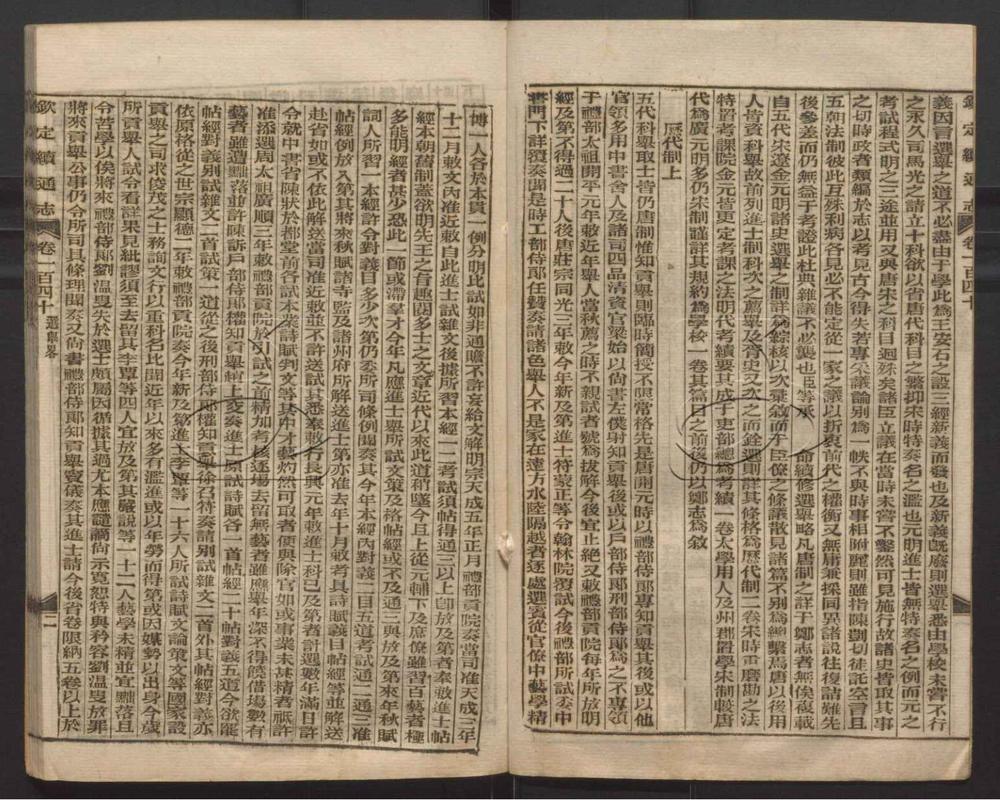 欽定續通志 卷一百四十
義因言選舉之道不必盡由于學此為王安石之設三經新義而發也及新義既廢則選舉悉由學校未嘗不行
之永久司馬光之請立十科欲以省唐代科目之繁抑宋時特奏名之濫也元明進士皆無特奏名之例而元之
考試程式明之三途並用又與唐宋之科目迥殊矣諸臣立議在當時未嘗不鑿然可見施行故諸史皆取其事
之切時政者類編於志以考見古今得失若專采議論別為一帙不與時事相附麗則雖指陳剴切徒託空言且
五朝法制彼此互殊利病各見必不能定從一家之議以折衷前代之權衡又無庸兼採同異諸說往復詰難先
後參差而仍無益于考證此杜典雜議不必襲也臣等承 命續修選舉略凡唐制之詳于鄭志者無俟複載
自五代宋遼金元明諸史選舉之制詳為綜核以次彙敘而午臣僚之條議散見諸篇不別為 繫焉唐以後用
人皆資科舉故前列進士制科次之薦舉及胥史又次之而銓選則詳其條格為歷代制二卷宋時重磨勘之法
特置考課院金元皆更定考課之法明代考績要其成于吏部總為考績一卷太學用人及州郡置學宋制較唐
代為廣元明多仍宋制謹詳其規約為學校一卷其篇目之前後仍以鄭志為敘
歷代制上
五代科舉取士皆仍唐制惟知貢舉則臨時簡授不限常格先是唐開元時以禮部侍郎專知貢舉其後或以他
官領多用中書舍人及諸司四品清資官梁始以尚書左僕射知貢舉後或以戶部侍郎刑部侍郎為之不專領
于禮部太祖開平元年敕近年舉人當秋薦之時不親試者號為拔解今後宜止絕又敕禮部貢院每年所放明
經及第不得過二十人後唐莊宗同光三年敕今年新及第進士符蒙正等令翰林院覆試今後禮部所試委中
書門下詳覆奏聞是時工部侍郎任贊奏請諸色舉人不是家在遠方水陸隔越者逐處選賓從官僚中藝學精
博一人各於本貫一例分明比試如非通贍不許妄給文解明宗天成五年正月禮部貢院奏當司准天成三年
十二月敕文內准近敕自此進士試雜文後據所習本經一一考試須帖得通三以上即放及第者奉敕進士帖
經本朝舊制蓋欲明先王之旨趣閱多士之文章近代以來此道稍墜今且上從元輔下及庶僚雖百藝者極
多能明經者甚少恐此一節或滯羣才今年凡應進士舉所試文策及格帖經或不及通三與放及第來年秋賦
詞人所習一本經許令對義目多少次第仍委所司條例聞奏其今年本經內對義一目五道考試通二通三准
帖經例放入第其將來秋賦諸寺監及諸州府所解送進士第亦准去年十月敕考其詩賦義目帖經等並解送
赴省如或不依此解送當司准近敕並不許送試其悉奉敕行長興元年敕進士科已及第者計選數年滿日許
令就中書省陳狀於都堂前各試本業詩賦判文等其中才藝灼然可取者便與除官如或事業未甚精者祇許
准添選周太祖廣順三年敕禮部貢院於引試之前精加考核逐場去留無藝者雖應舉年深不得饒借場數有
藝者雖遭黜落並許陳訴戶部侍郎權知貢舉趙上交奏進士原試詩賦各一首帖經二十帖對義五道今欲罷
帖經對義別試雜文二首試策一道從之後刑部侍郎權知貢舉徐召符奏請別試雜文二首外其帖經對義亦
依原格從之世宗顯德二年敕禮部貢院奏今年新及第進士李覃等一十六人所試詩賦文論策文等國家設
貢舉之司求俊茂之士務詢文行以重科名比聞近年以來多有濫進或以年勞而得第或因媒勢以出身今歲
所貢舉人試令看詳果見紕謬須至去留其李覃等四人宜放及第其嚴說等一十二人藝學未精並宜黜落且
令苦學以俟將來禮部侍郎劉溫叟失於選士頗屬因循據其過尤本應譴謫尚示寬恕特與矜容劉溫叟放罪
將來貢舉公事仍令所司具條理聞奏又尚書禮部侍郎知貢舉竇儀奏其進士請今後省卷限納五卷以上於
欽定續通志 卷一百四十 選舉略
二